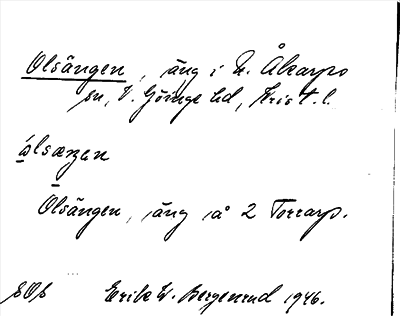 Olsängen, äng i N. Åkarps
sn, V. Göinge hd, Krist. l.
Olsängen, äng å 2 Torrarp.
SOÄ Erik W. Bergenrud 1946.